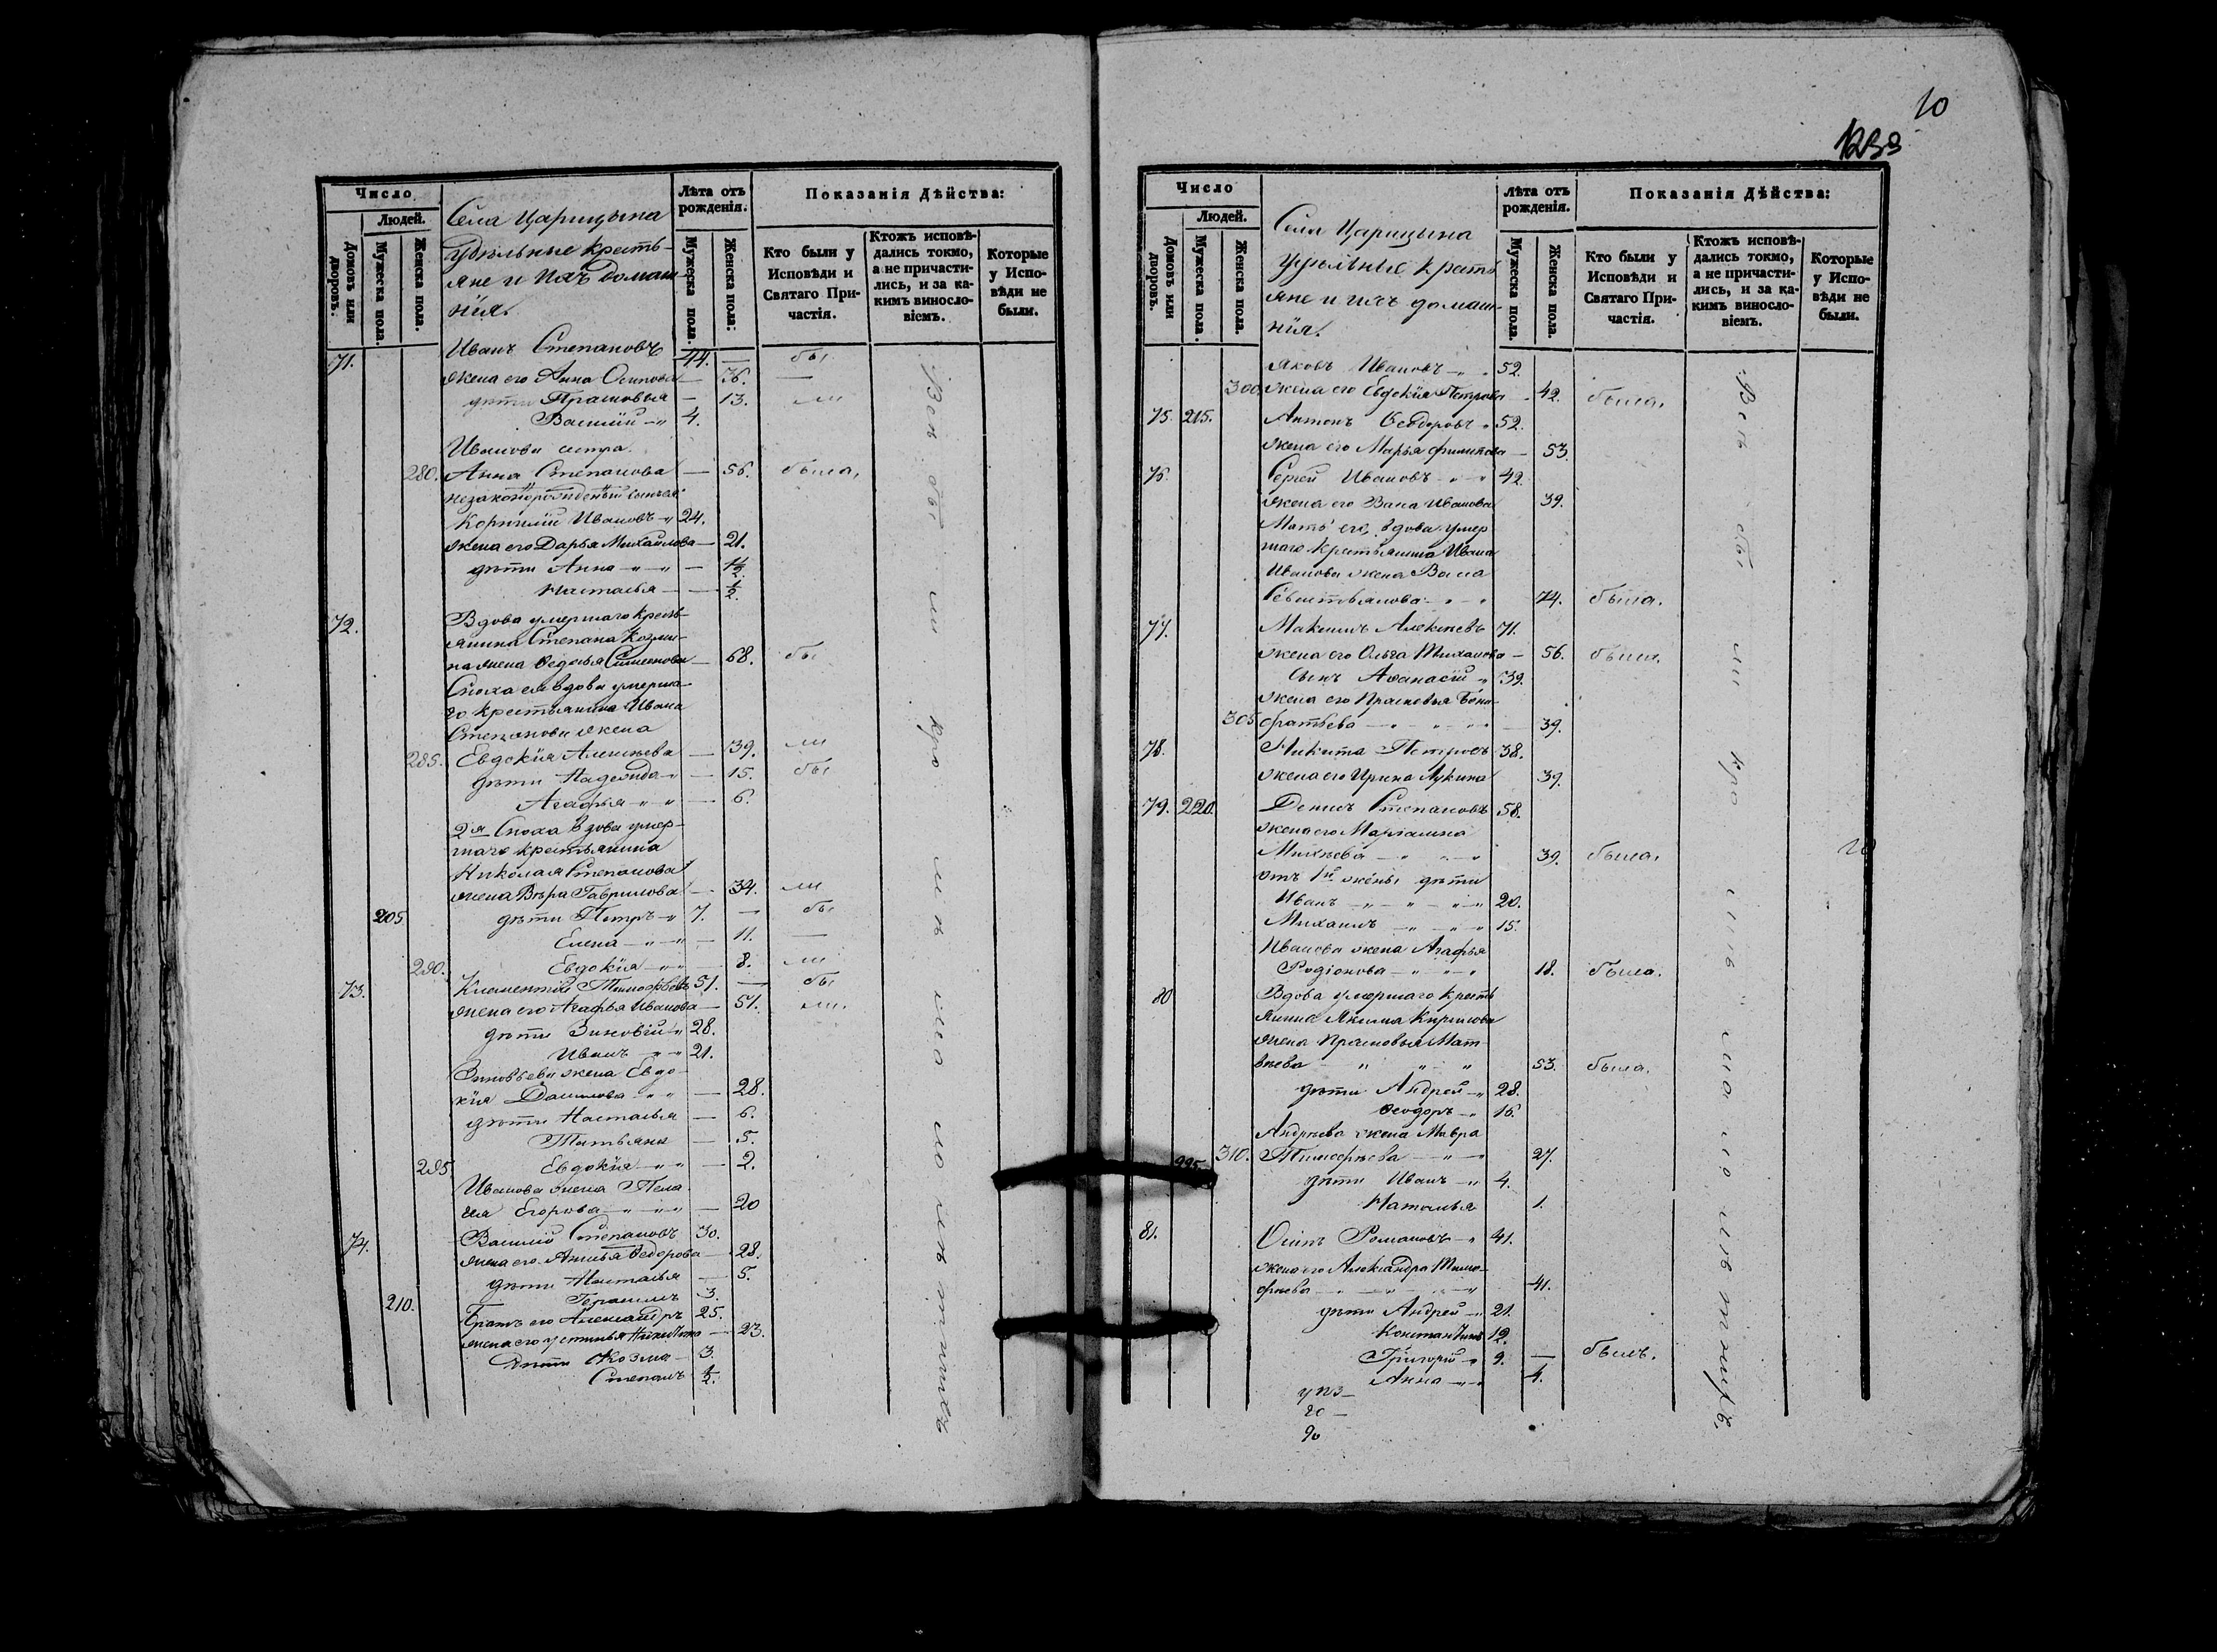 10
1233
Число
Людей.
Домовъ или дворовъ.
Мужеска пола.
Женска пола.
Села Царицына
удѣльные кресть-
яне и ихъ домаш
нія.
Лѣта отъ рожденія.
Мужеска пола.
Женска пола.
Показанія Дѣйства:
Кто были у Исповѣди и Святаго При-частія.
Ктожъ исповѣ-дались токмо, а не причасти-лись, и за ка-кимъ виносло-віемъ.
Которые у Испо-вѣди не были.
71. Иванъ Степановъ 44. — бы
жена его Анна Осипова — 36. —
дѣти Прасковья — 13. ли
Василій 4.
Иванова сестра
280. Анна Степанова — 56. была,
незаконорожденый сынъ ея
Корнилій Ивановъ 24.
жена его Дарья Михайлова — 21.
дѣти Анна — 1½
Настасья — ½.
72. Вдова умершаго кресть-
янина Степана Козми-
на жена Ѳедосья — 68. бы
Сноха ея вдова умерша-
го крестьянина Ивана
Степанова жена
285. Евдокія Алексѣева — 39. ли
дѣти Надежда — 15. бы
Агафья — 6.
2я Сноха вдова умер-
шаго крестьянина
Николая Степанова
жена Вѣра Гаврилова — 34. ли
205 дѣти Петръ 7. — бы
Елена — 11. —
290. Евдокія — 8. ли
73. Климентій Тимоѳѣевъ 51. — бы
жена его Агафья Иванова — 51. ли.
дѣти Зиновій 28.
Иванъ 21.
Зиновьева жена Евдо-
кія Данилова — 28.
дѣти Настасья — 6.
Татьяна — 5.
295 Евдокія — 2.
Иванова жена Пела
гия Егорова — 20
74. Василій Степановъ 30.
жена его Ѳедорова — 28.
дѣти Настасья — 5.
210. Герасимъ 3.
Братъ его Александръ 25.
жена его Устинья Никитина — 23.
дѣти Козма 3.
Степанъ ½.
Число
Людей.
Домовъ или дворовъ.
Мужеска пола.
Женска пола.
Села Царицына
удѣльные кресть
яне и ихъ домаш-
нія.
Лѣта отъ рожденія.
Мужеска пола.
Женска пола.
Показанія Дѣйства:
Кто были у Исповѣди и Святаго При-частія.
Ктожъ исповѣ-дались токмо, а не причасти-лись, и за ка-кимъ виносло-віемъ.
Которые у Испо-вѣди не были.
Яковъ Ивановъ 52.
300. жена его Евдокія Петрова — 42. была,
75. 215. Антонъ Ѳеодоровъ 52.
жена его Марья Филипова — 53.
76. Сергей Ивановъ 42.
жена его Васа Иванова 39.
Мать его, вдова умер
шаго крестьянина Ивана
Иванова жена Васа
Севастьянова 74. была.
77. Максимъ Алексѣевъ 71.
жена его Ольга — 56. была,
сынъ Аѳанасій 39.
жена его Прасковья
305 39.
78. Никита Петровъ 38.
жена его Ирина Лукина 39.
79. 220. Денисъ Степановъ 58.
жена его Маріамна
Михѣева 39. была,
отъ 1й жены дѣти
Иванъ 20.
Михаилъ 15.
Иванова жена Агафья
Родіонова 18. была.
80 Вдова умершаго кресть
янина Якима Кирилова
жена Прасковья Мат-
вѣева 53. была.
дѣти Андрей 28.
Ѳеодоръ 16.
Андрѣева жена Мавра
225. 310. Тимоѳѣева 27.
дѣти Иванъ 4.
Наталья 1.
81. Осипъ Романовъ 41.
жена его Александра Тимо-
фѣева 41.
дѣти Андрей 21.
Константинъ 12.
Григорій 9. — былъ.
Анна 4.
20 —
90